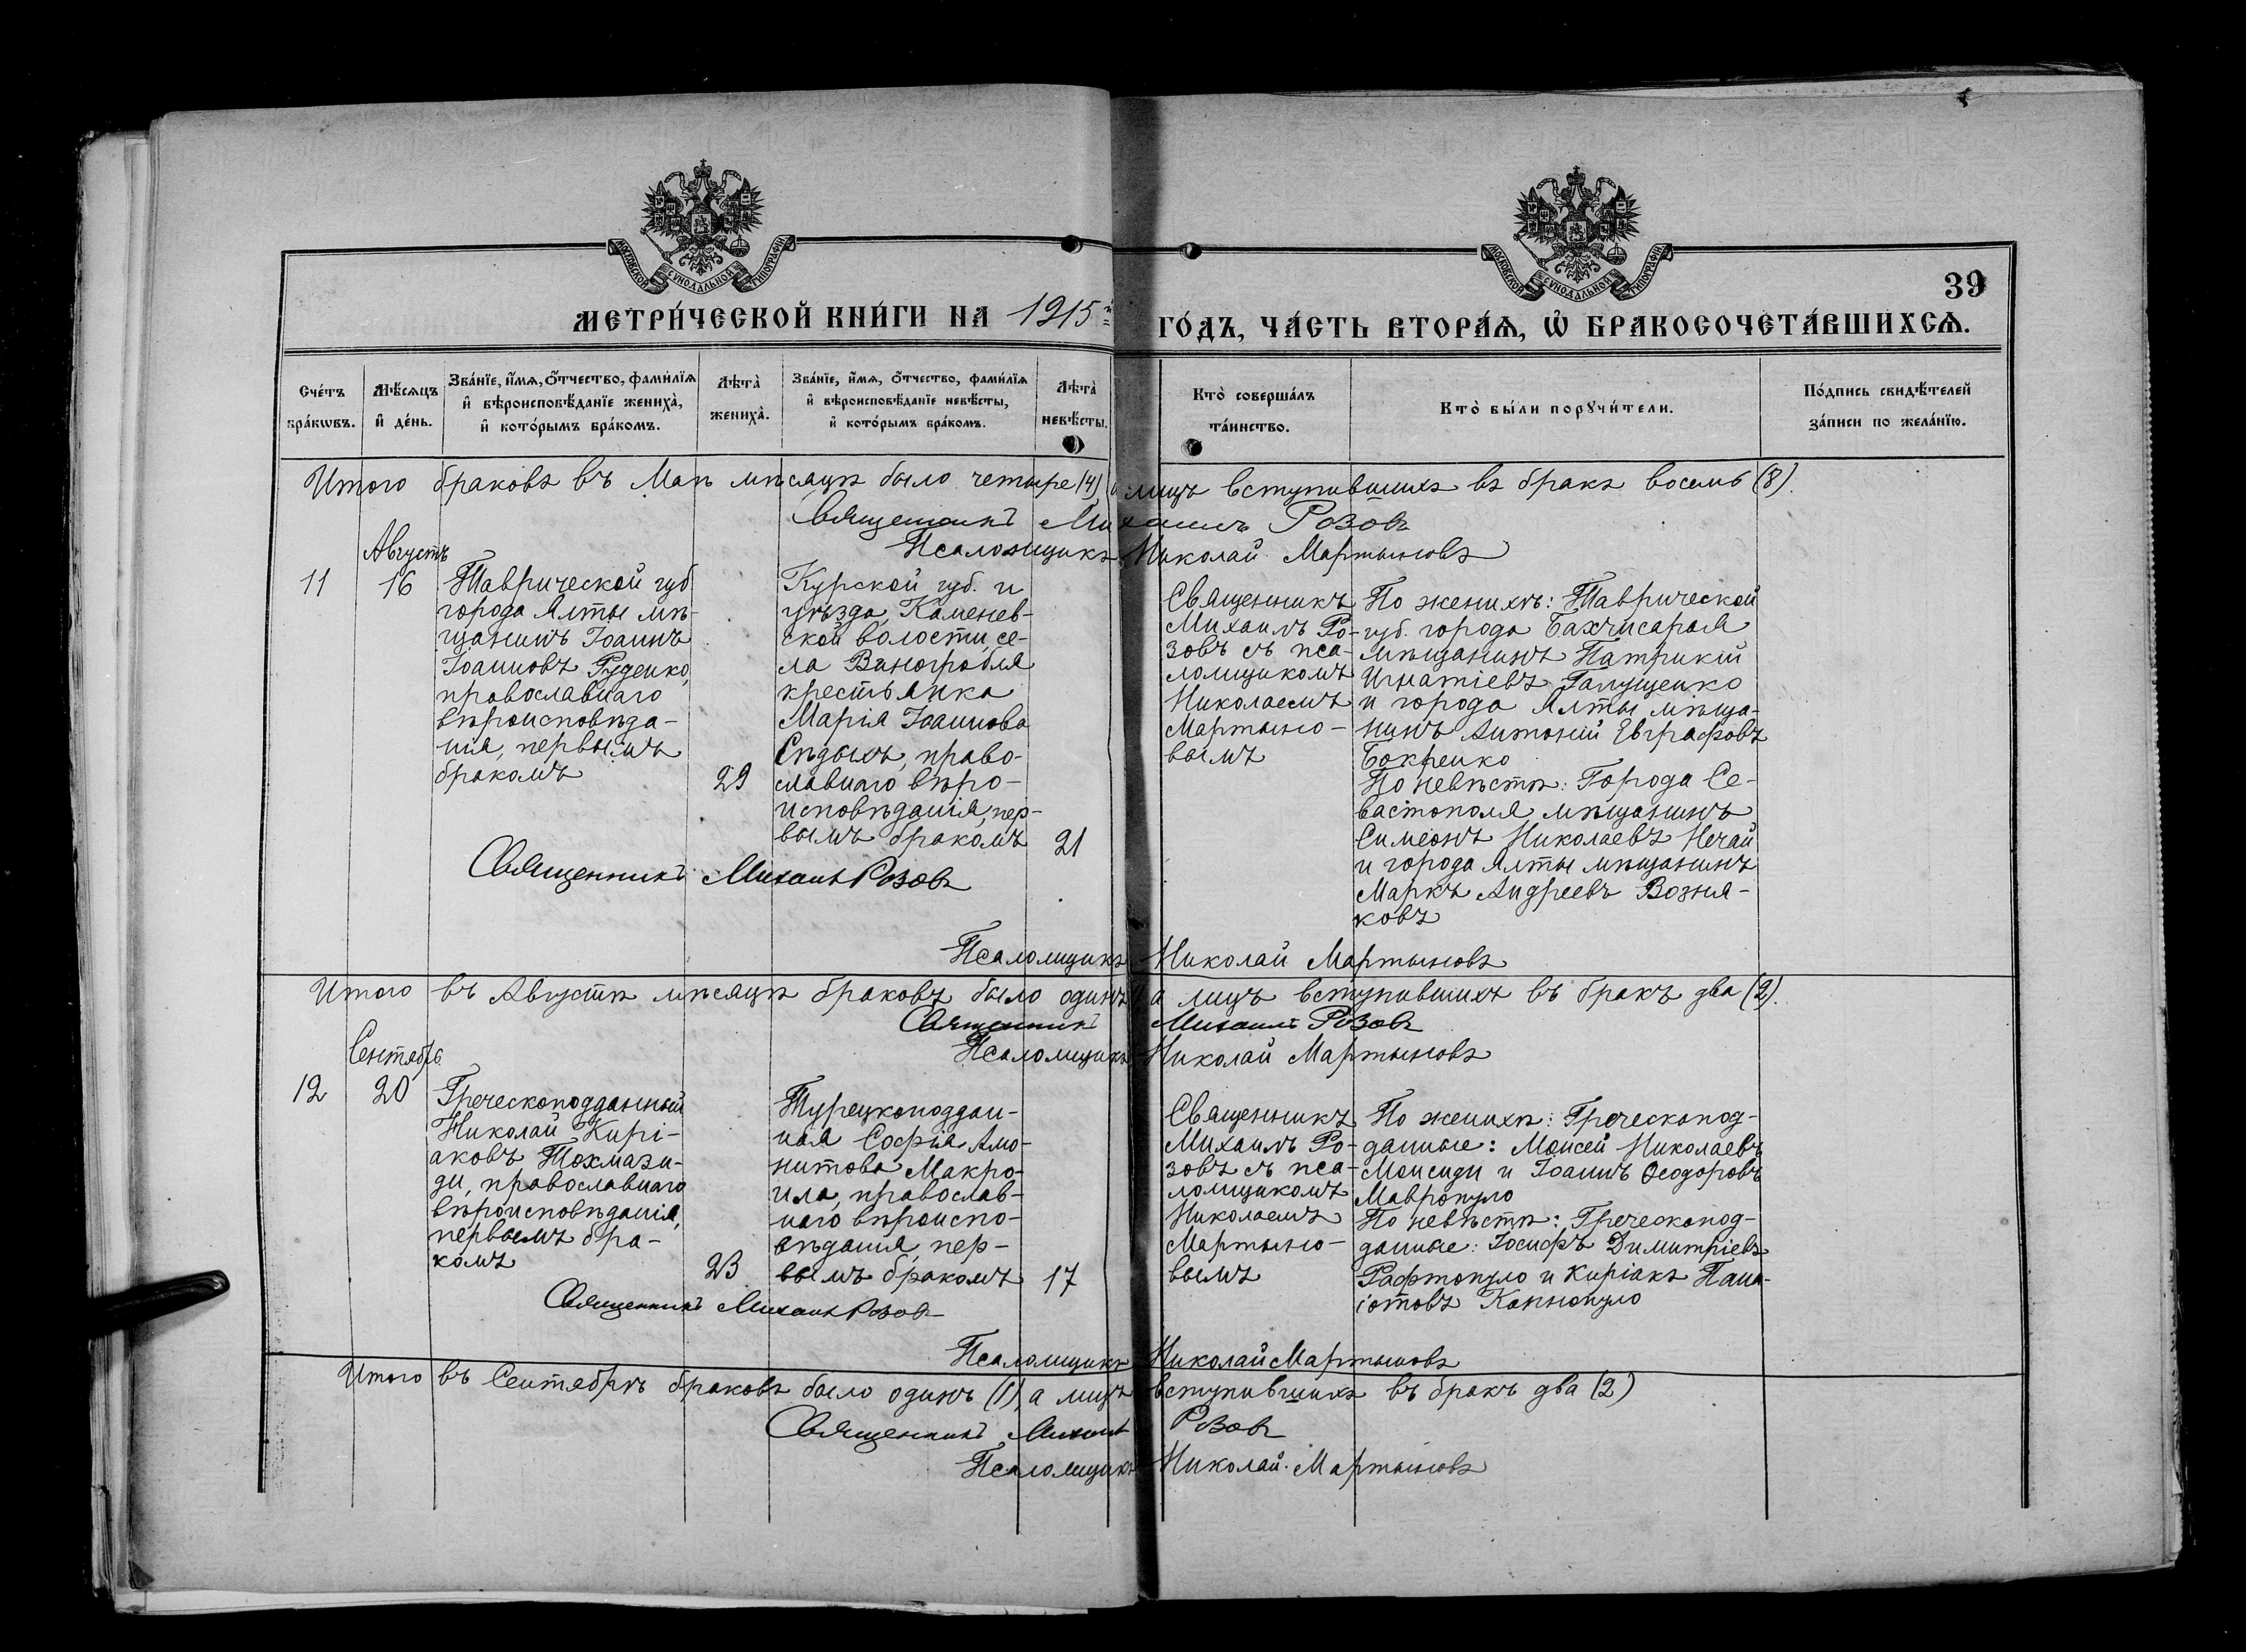 МОСКОВСКОЙ СѴНОДАЛЬНОЙ ТИПОГРАФІИ
МОСКОВСКОЙ СѴНОДАЛЬНОЙ ТИПОГРАФІИ
39
МЕТРИ́ЧЕСКОЙ КНИ́ГИ НА 1915й ГО́ДЪ, ЧА́СТЬ ВТОРА́Ѧ, Ѽ БРАКОСОЧЕТА́ВШИХСѦ.
Сче́тъ бра́кѡвъ.
Мѣ́сѧцъ и҆ де́нь.
Зва́нїе, и҆́мѧ, ѻ҆́тчество, фами́лїѧ и҆ вѣроисповѣ́данїе жениха̀, и҆ кото́рымъ бра́комъ.
Лѣта̀ жениха̀.
Зва́нїе, и҆́мѧ, ѻ҆́тчество, фами́лїѧ и҆ вѣроисповѣ́данїе невѣ́сты, и҆ кото́рымъ бра́комъ.
Лѣта̀ невѣ́сты.
Кто̀ соверша́лъ та́инство.
Кто̀ бы́ли порꙋчи́тели.
По́дпись свидѣ́телей за́писи по жела́нїю.
Итого браковъ въ Маѣ мѣсяцѣ было четыре (4) а лицъ вступившихъ въ бракъ восемь (8).
Священникъ Михаилъ Розовъ
Псаломщикъ Николай Мартыновъ
Августъ
11
16
Таврической губ.
города Ялты мѣ-
щанинъ Іоаннъ
Іоанновъ Руденко,
православнаго
вѣроисповѣда-
нія, первымъ
бракомъ
29
Курской губ. и
уѣзда, Каменев-
ской волости, се-
ла Виногробля
крестьянка
Марія Іоаннова
Сѣдыхъ, право-
славнаго вѣро-
исповѣданія, пер-
вымъ бракомъ
21
Священникъ
Михаилъ Ро-
зовъ съ пса-
ломщикомъ
Николаемъ
Мартыно-
вымъ
По женихѣ: Таврической
губ. города Бахчисарая
мѣщанинъ Патрикій
Игнатіевъ Галущенко
и города Ялты мѣща-
нинъ Антоній Евграфовъ
Бокренко
По невѣстѣ: Города Се-
вастополя мѣщанинъ
Симеонъ Николаевъ Нечай
и города Ялты мѣщанинъ
Маркъ Андреевъ Возня-
ковъ
Священникъ Михаилъ Розовъ
Псаломщикъ Николай Мартыновъ
Итого въ Августѣ мѣсяцѣ браковъ было одинъ а лицъ вступившихъ въ бракъ два (2).
Священникъ Михаилъ Розовъ
Псаломщикъ Николай Мартыновъ
Сентябрь
12
20
Греческоподданный
Николай Кирі-
аковъ Тохмази-
ди, православнаго
вѣроисповѣданія,
первымъ бра-
комъ
23
Турецкоподдан-
ная Софія Амо-
нитова Макро-
ила, православ-
наго вѣроиспо-
вѣданія, пер-
вымъ бракомъ
17
Священникъ
Михаилъ Ро-
зовъ съ пса-
ломщикомъ
Николаемъ
Мартыно-
вымъ
По женихѣ: Греческопод-
данные: Моисей Николаевъ
Моисиди и Іоаннъ Ѳеодоровъ
Мавропуло
По невѣстѣ: Греческопод-
данные: Іосифъ Димитріевъ
Рафтопуло и Киріакъ Пана-
іотовъ Капнопуло
Священникъ Михаилъ Розовъ
Псаломщикъ Николай Мартыновъ
Итого въ Сентябрѣ браковъ было одинъ (1), а лицъ вступившихъ въ бракъ два (2)
Священникъ Михаилъ Розовъ
Псаломщикъ Николай Мартыновъ